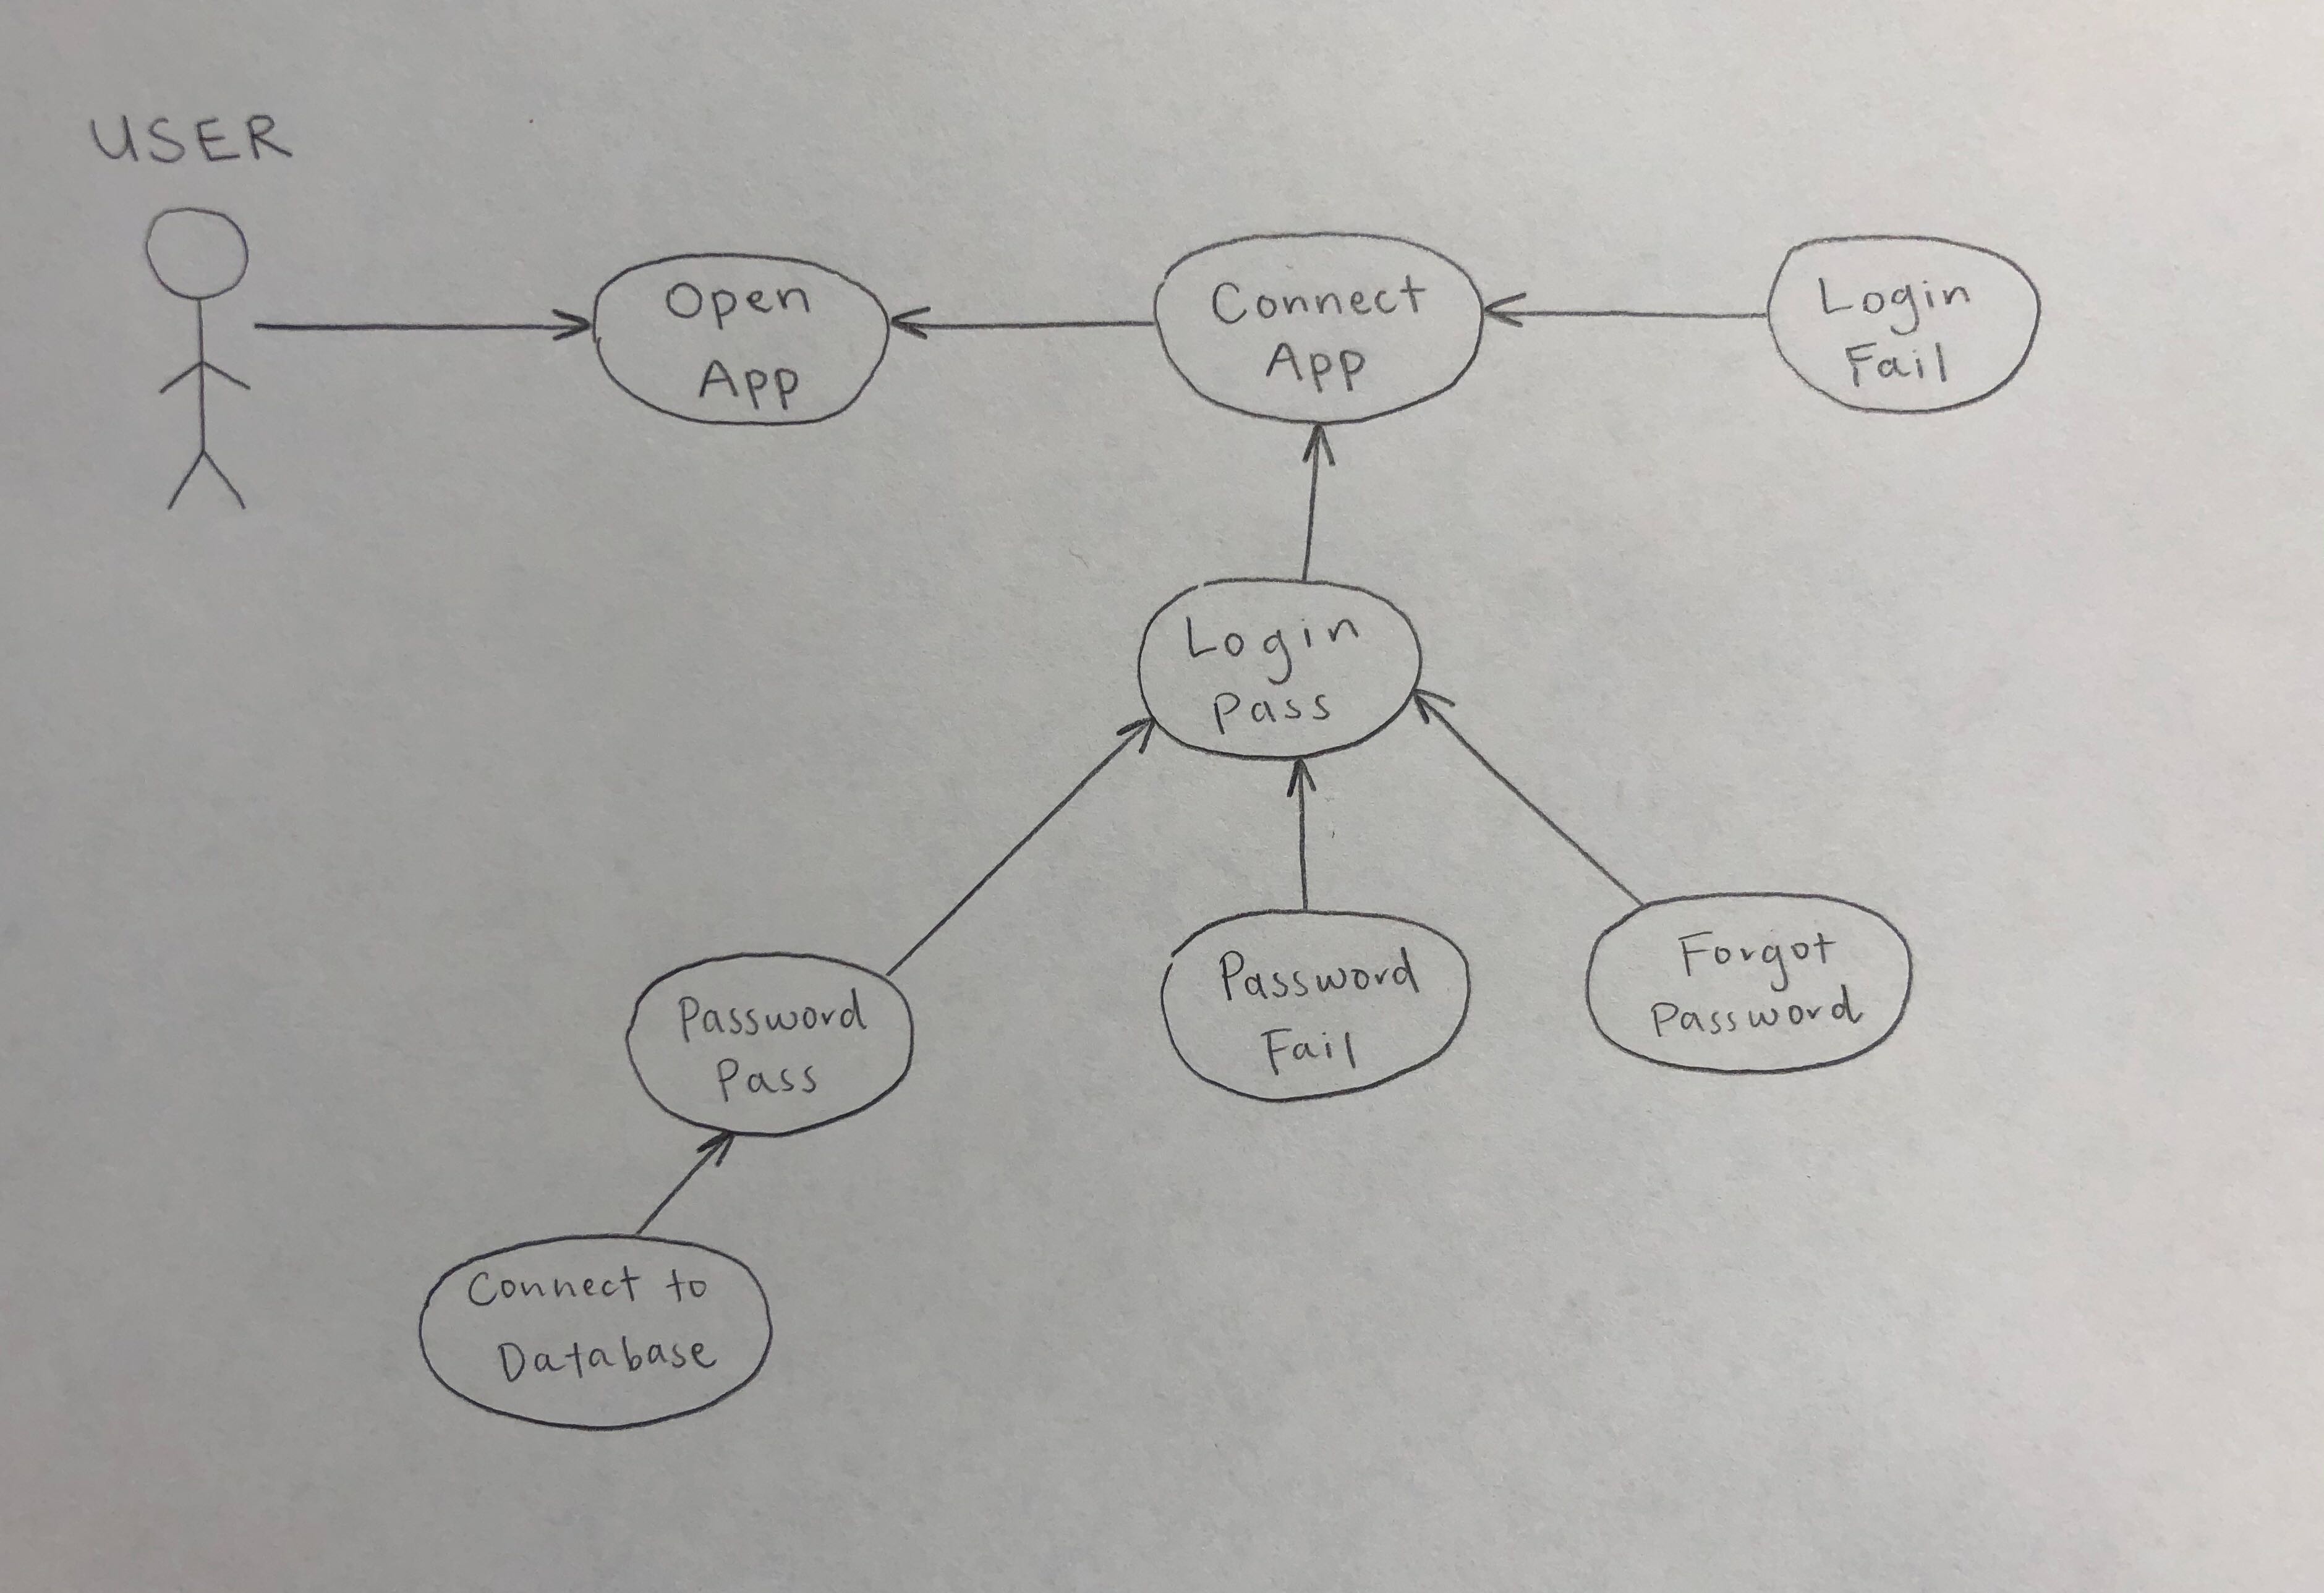 USER
Open
App
Connect
App
Login
Fail
Login
Pass
Password
Pass
Password
Fail
Forgot
Password
Connect to
Database